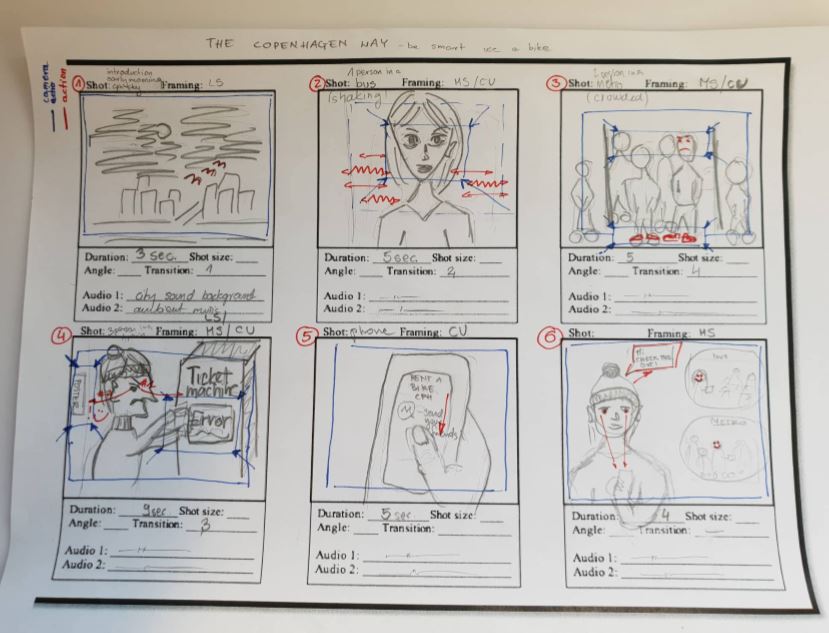 THE COPENHAGEN WAY - be smart use a bike
camera
action
1
introduction
early morning
Shot: Framing: LS
Duration: 3 sec. Shot size:
Angle: Transition: 1
Audio 1: city sound background
Audio 2: ambient music
2
1 person in a
Shot: bus Framing: MS/CU
(shaking)
Duration: 5sec. Shot size:
Angle: Transition: 2
Audio 1:
Audio 2:
3
Shot: Metro Framing: MS/CU
(crowded)
Duration: 5 Shot size:
Angle: Transition: 4
Audio 1:
Audio 2:
4
LS/
Shot: Framing: MS/CU
POSTER
Ticket
machine
Error
Duration: 9sec Shot size:
Angle: Transition: 3
Audio 1:
Audio 2:
5
Shot: phone Framing: CU
RENT A
BIKE
CPH
Duration: 5 sec Shot size:
Angle: Transition:
Audio 1:
Audio 2:
6
Shot: Framing: MS
CHECK THIS
OUT!
BUS
METRO
Duration: 4 Shot size:
Angle: Transition:
Audio 1:
Audio 2: